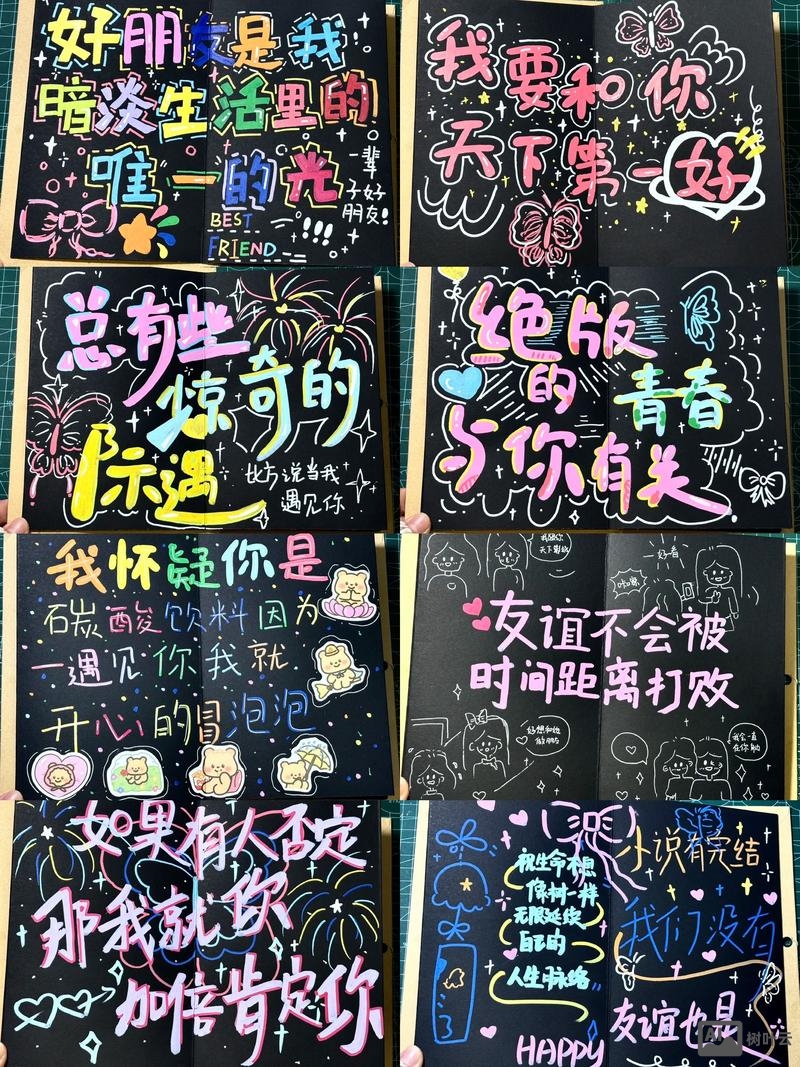 好朋友是我
暗淡生活里的
唯一的光
一辈
子好
朋友!
BEST
FRIEND
!!!
我要和你
天下第一好
总有些
惊奇的
际遇
比方说当我
遇见你
绝版
的青春
与你有关
我怀疑你是
碳酸饮料因为
一遇见你我就
开心的冒泡泡
天下第一好
一好春
友谊不会被
时间距离打败
好想和她
做朋友
我会一直
在你身边
如果有人否定
那我就你
加倍肯定你
祝生命树
像树一样
无限延续
自己的
人生脉络
小说有完结
我们没有
友谊也是
HAPPY
树叶云